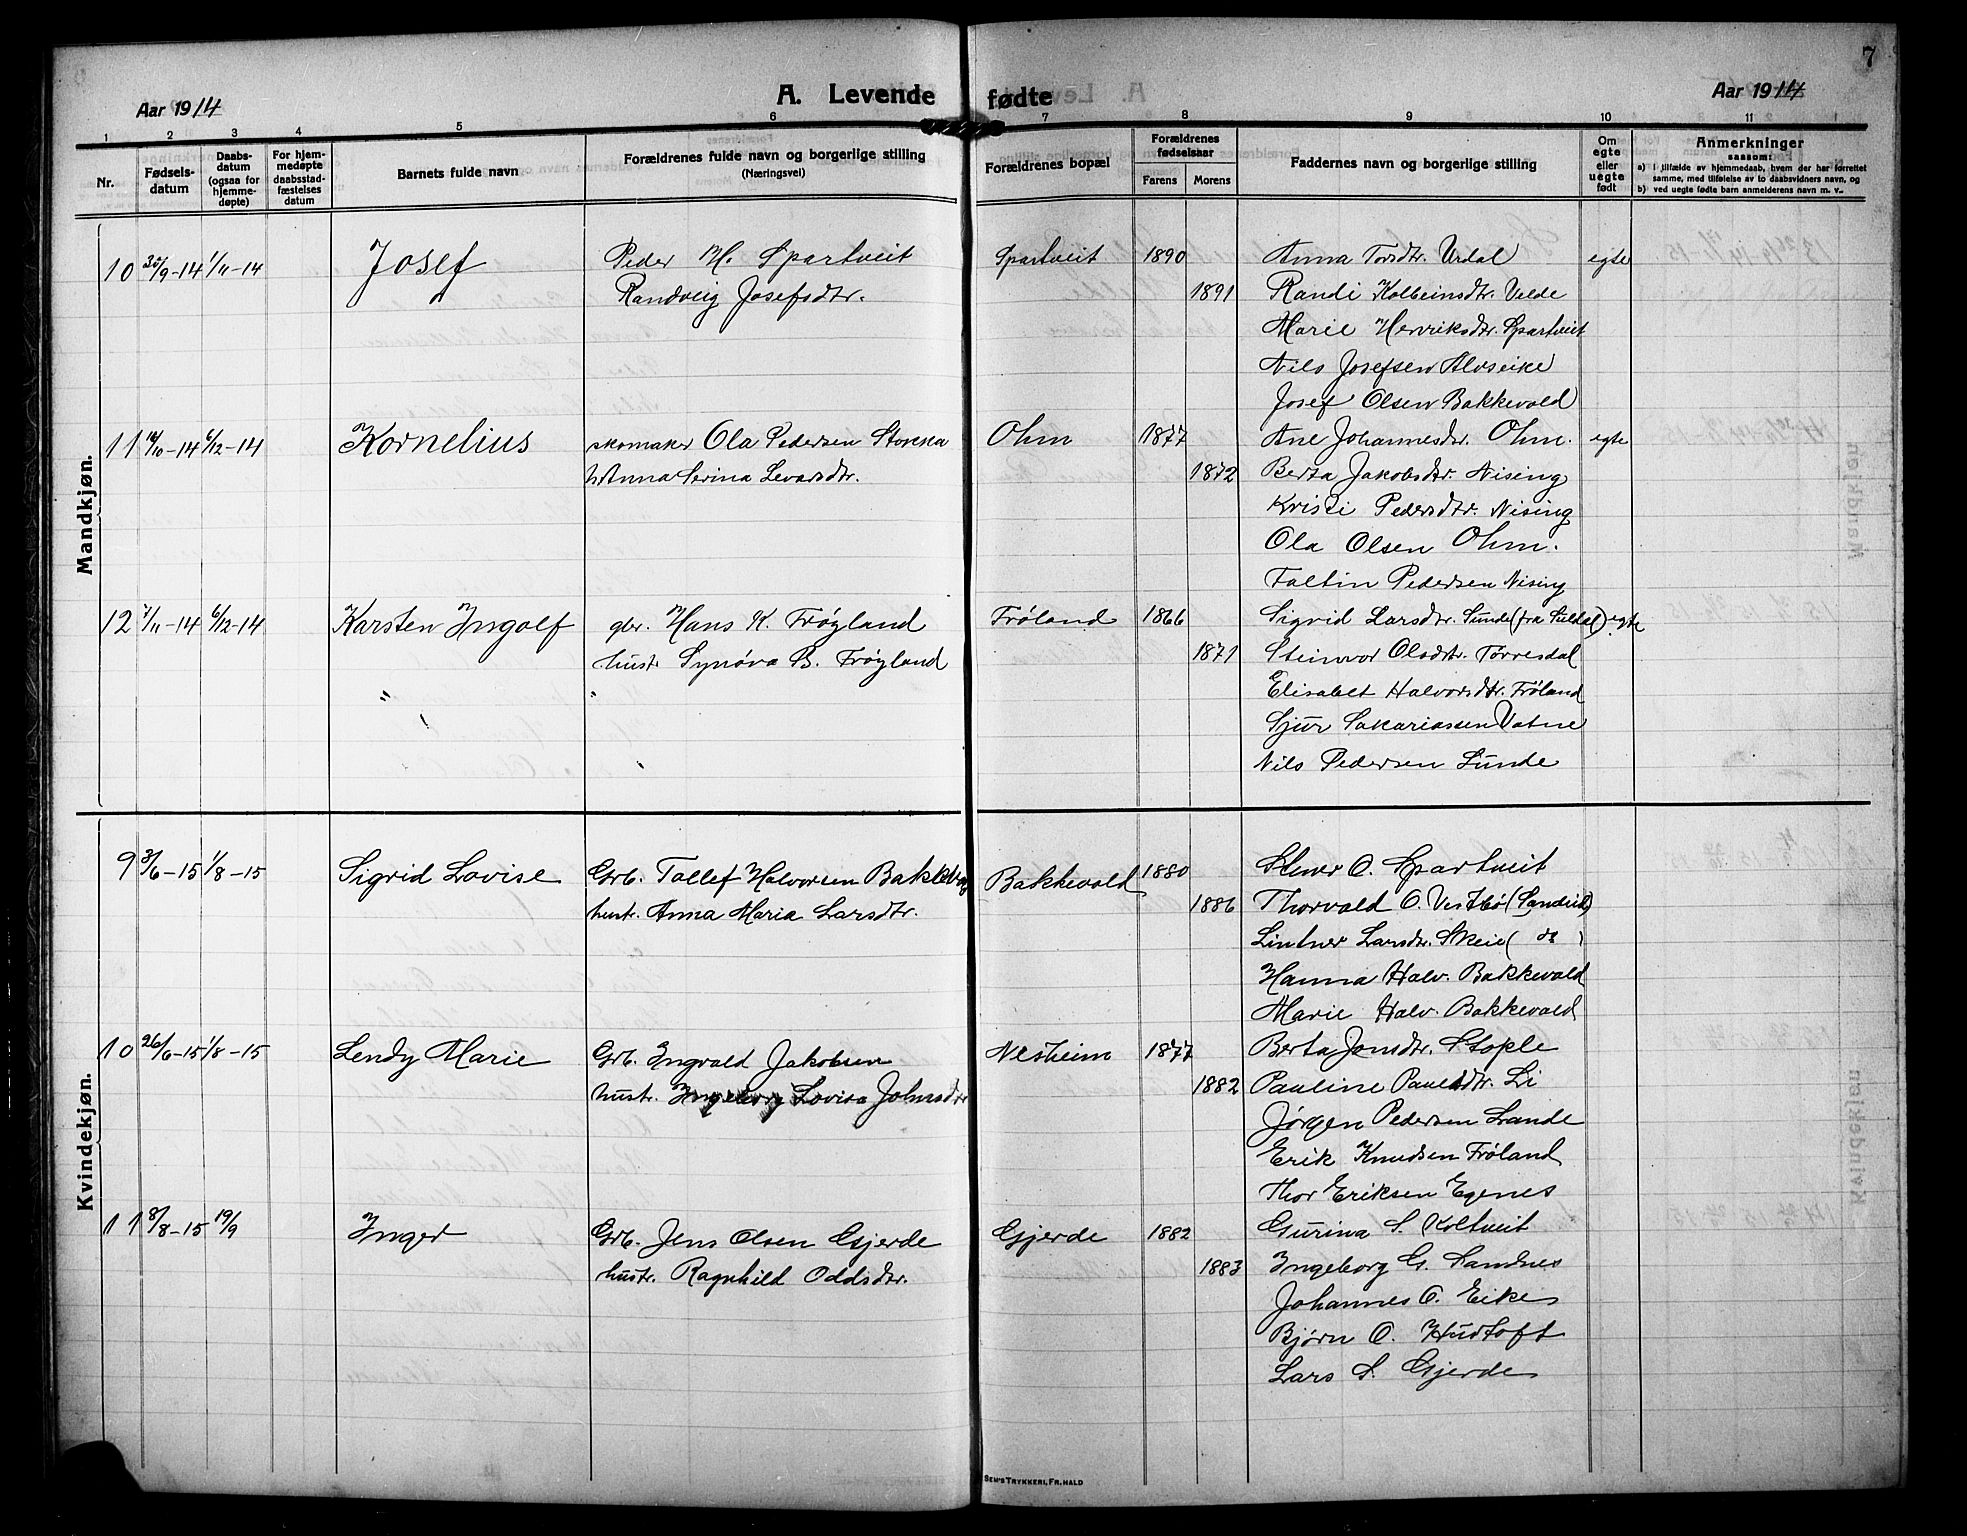 7
Aar 1914
A. Levende fødte
Aar 1914
1 2 3 4 5 6 7 8 9 10 11
Nr.
Fødsels-
datum
Daabs-
datum
(ogsaa for
hjemme-
døpte)
For hjem-
medøpte
daabsstad-
fæstelses
datum
Barnets fulde navn
Forældrenes fulde navn og borgerlige stilling
(Næringsvei)
Forældrenes bopæl
Forældrenes
fødselsaar
Farens Morens
Faddernes navn og borgerlige stilling
Om
egte
eller
uegte
født
Anmerkninger
saasom:
a) i tilfælde av hjemmedaab, hvem der har forrettet
samme, med tilføielse av to daabsvidners navn, og
b) ved uegte fødte barn anmelderens navn m. v.
Mandkjøn.
10 30/9-14 1/11-14 Josef Peder H. Spartveit Spartveit 1890 Anna Torsdtr. Urdal egte
Randveig Josefsdtr. 1891 Randi Kolbeinsdtr. Velde
Marie Henriksdtr. Spartveit
Nils Josefsen Alvseike
Josef Olsen Bakkevold
11 14/10-14 6/12-14 Kornelius skomaker Ola Pedersen Stokka Ohm 1877 Ane Johannesdtr. Ohm. egte
h. Anna Serina Levardsdtr. 1872 Berta Jakobsdtr. Nising
Kristi Pedersdtr. Nising
Ola Olsen Ohm.
Faltin Pedersen Nising
12 7/11-14 6/12-14 Karsten Ingolf gbr. Hans K. Frøyland Frøland 1866 Sigrid Larsdtr. Sunde (fra Suldal) egte
hustr. Synøva B. Frøyland 1871 Steinvor Olsdtr. Torresdal
Elisabet Halvorsdtr. Frøland
Sjur Sakariassen Vatne
Nils Pedersen Sunde
Kvindekjøn.
9 3/6-15 1/8-15 Sigrid Lovise Grb. Tollef Halvorsen Bakkevog Bakkevold 1880 Elmer O. Spartveit
hustr. Anna Maria Larsdtr. 1886 Thorvald O. Vestbø (Sandeid)
Lintner Larsdtr. Skeie ( do )
Hanna Halv. Bakkevold
Marie Halv. Bakkevold
10 26/6-15 1/8-15 Lendy Marie Grb. Ingvald Jakobsen Nesheim 1877 Berta Jonsdtr. Stople
hustr. Ingeborg Lovisa Johnsdtr 1882 Pauline Paulsdtr. Li
Jørgen Pedersen Lande
Erik Knudsen Frøland
Thor Eriksen Egenes
11 8/8-15 19/9 Inger Grb. Jens Olsen Gjerde Gjerde 1882 Gurina S. Koltveit
hustr. Ragnhild Oddsdtr. 1883 Ingeborg G. Sandnes
Johannes O. Eike
Bjørn O. Hustoft
Lars S. Gjerde
SEM'S TRYKKERI, FR. HALD